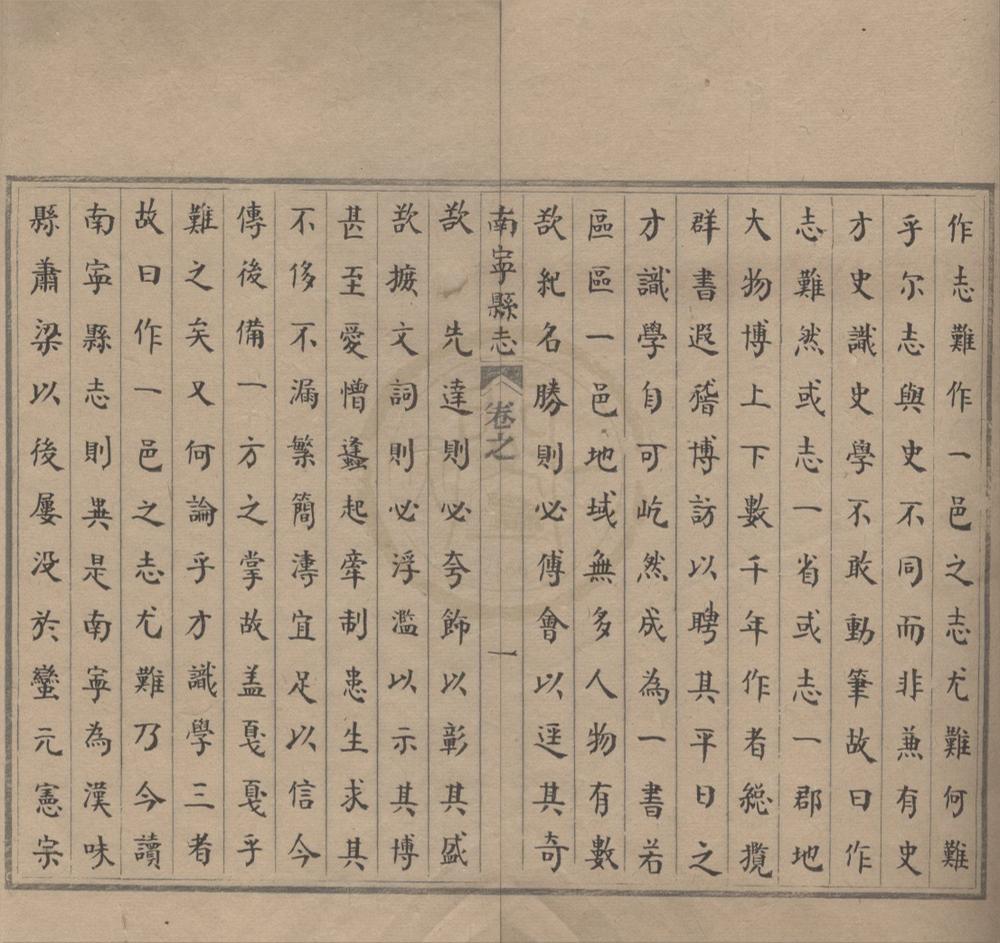 作志難作一邑之志尤難何難
乎尔志與史不同而非兼有史
才史識史學不敢動筆故曰作
志難然或志一省或志一郡地
大物博上下數千年作者総攬
群書遐稽博訪以聘其平日之
才識學自可屹然成為一書若
區區一邑地域無多人物有數
欲紀名勝則必傅會以逞其奇
南寧縣志 卷之 一
欲 先達則必夸飾以彰其盛
欲摭文詞則必浮濫以示其博
甚至愛憎蠭起牽制患生求其
不侈不漏繁簡漙宜足以信今
傳後備一方之掌故盖戛戛乎
難之矣又何論乎才識學三者
故曰作一邑之志尤難乃今讀
南寧縣志則異是南寧為漢味
縣蕭梁以後屢没於蠻元憲宗